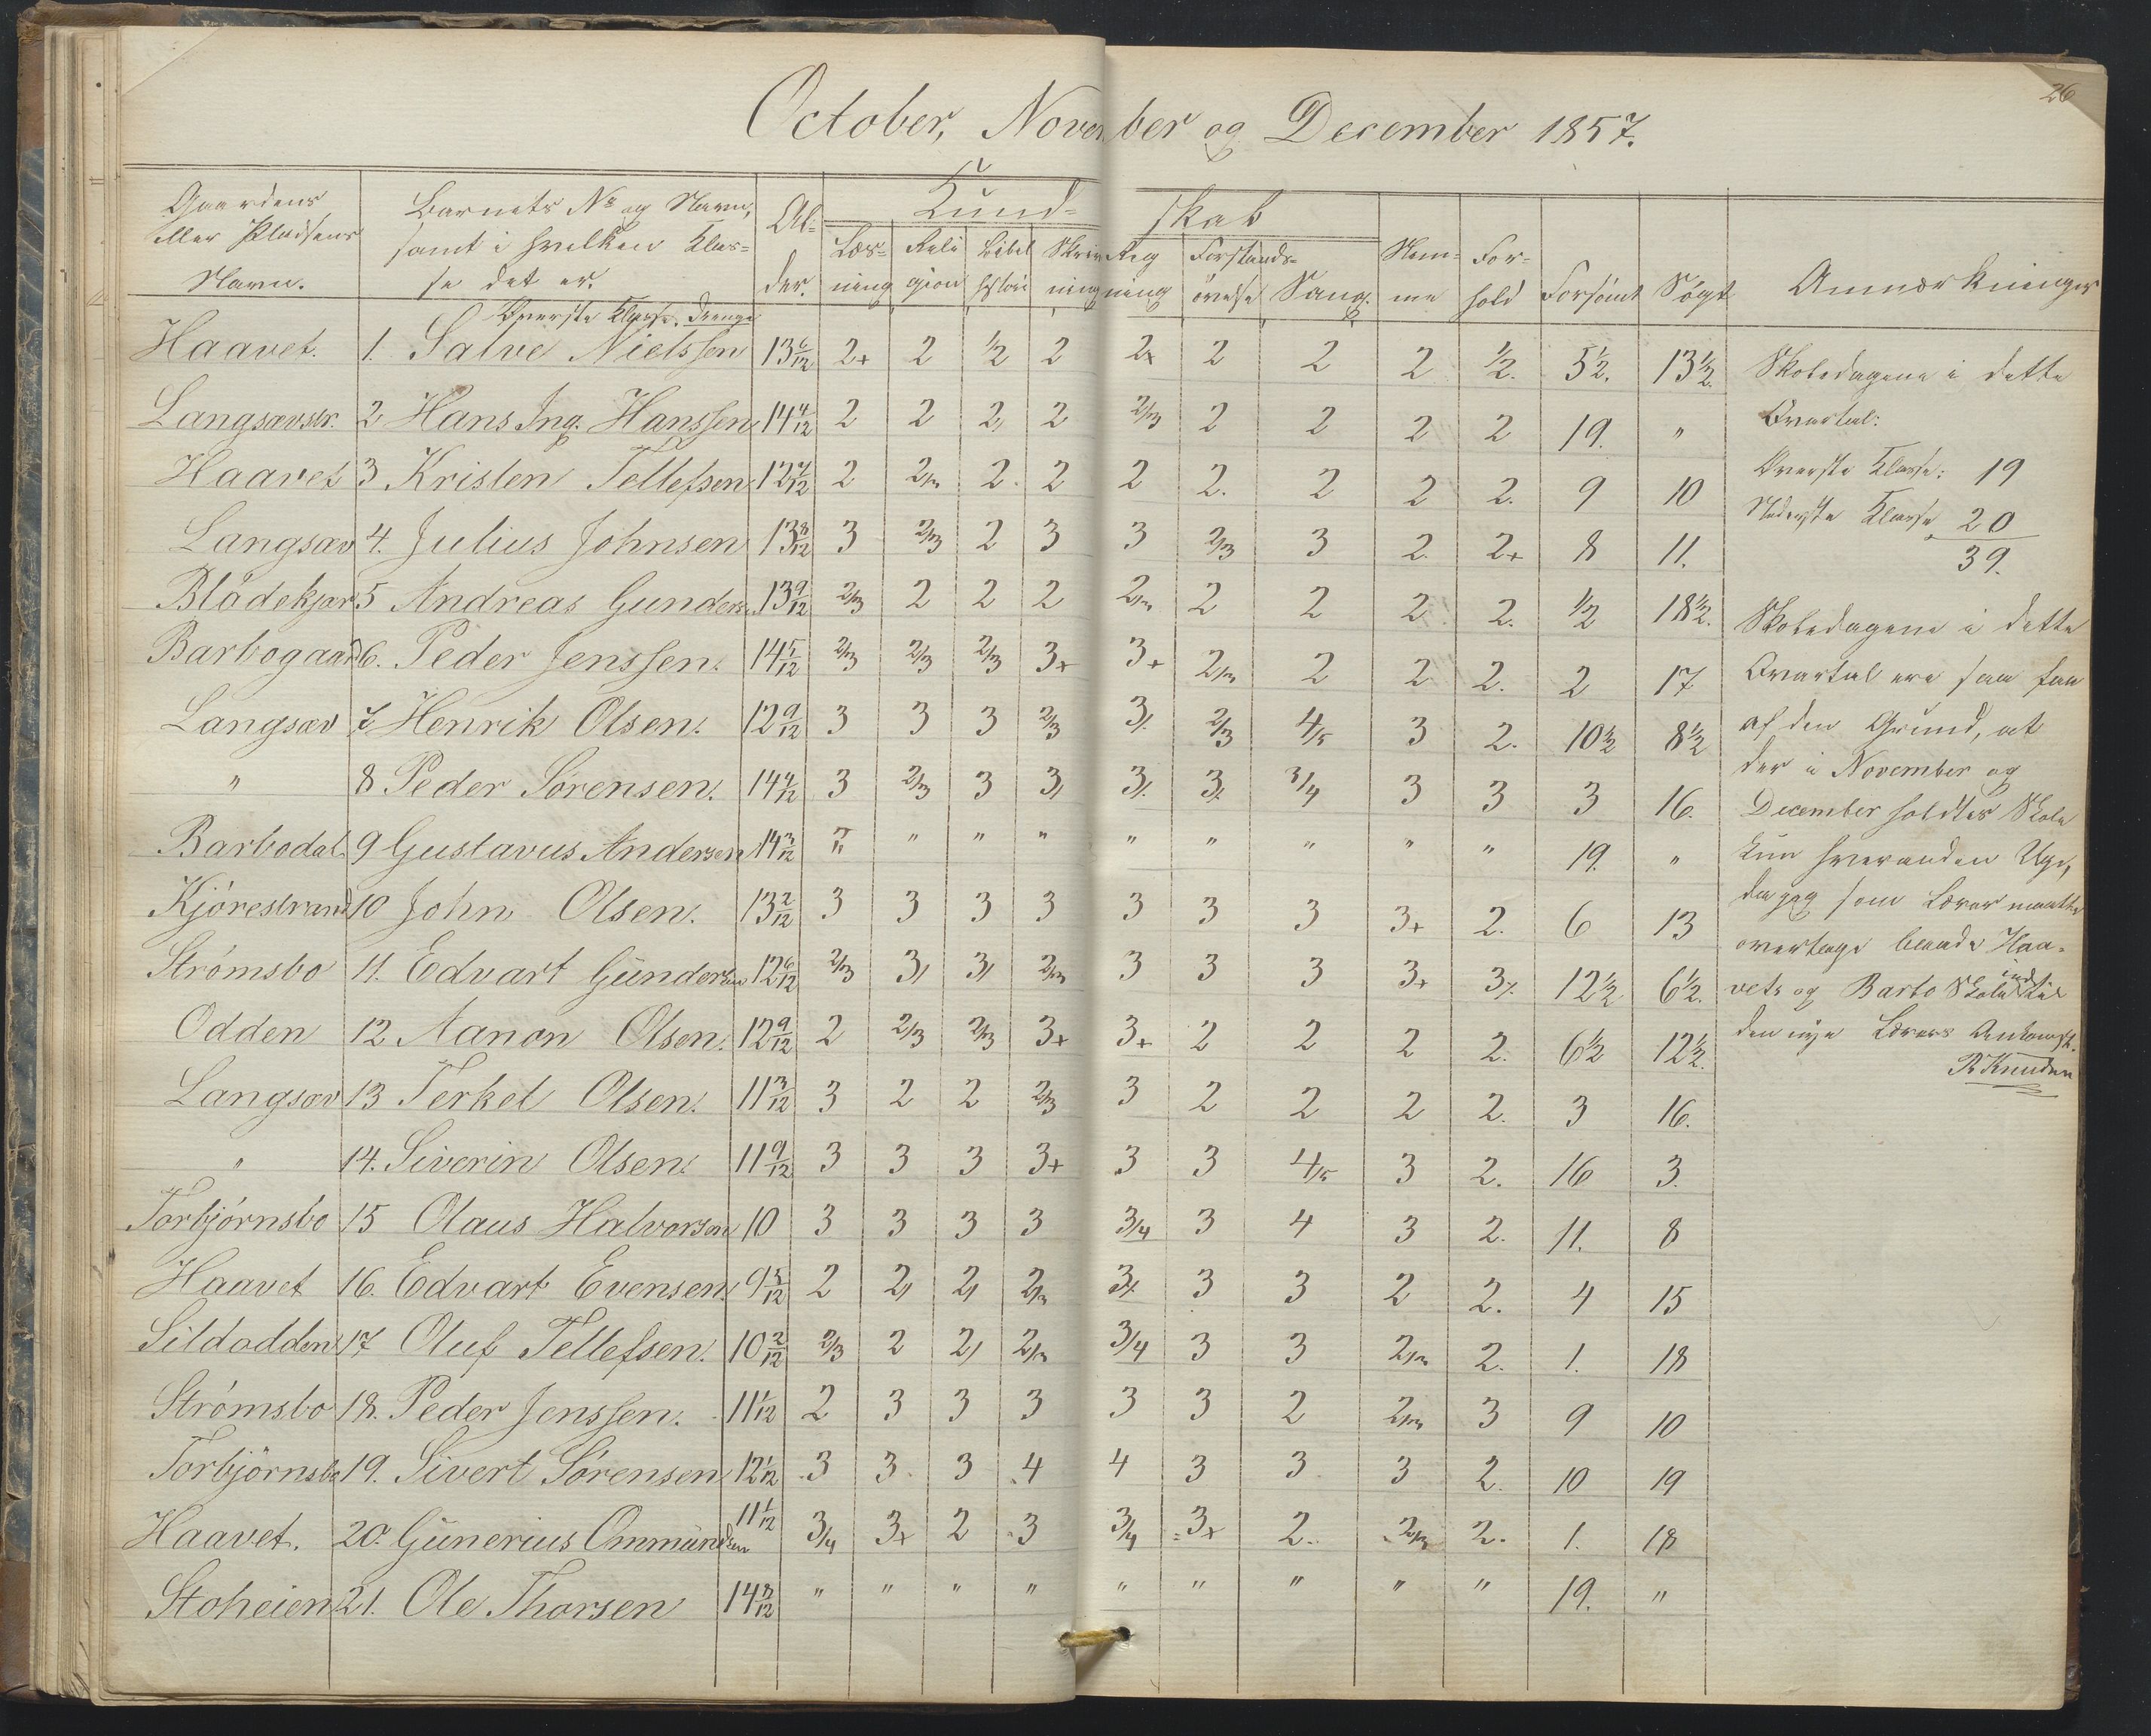 26
October, November og December 1857.
Gaardens eller Pladsens Navn. | Barnets No og Navn, samt i hvilken Klasse det er. | Alder. | Kundskab | Nemme | Forhold | Forsömt | Søgt | Anmærkninger
Læsning | Religion | Bibelhistori | Skrivning | Regning | Forstandsövelse | Sang.
Överste Klasse. Drenge
Haavet. 1. Salve Nielssen 13 6/12 2+ 2 1/2 2 2+ 2 2 2 1/2. 5 1/2. 13 1/2.
Langsævstr. 2 Hans Ing. Hanssen 14 4/12 2 2 2, 2 2/3 2 2 2 2 19. "
Haavet 3 Kristen Tellefsen 12 7/12 2 2/3 2. 2 2 2. 2 2 2. 9 10
Langsæv 4. Julius Johnsen 13 8/12 3 2/3 2 3 3 2/3 3 2. 2+ 8 11.
Blödekjær 5 Andreas Gunders. 13 9/12 2/3 2 2 2 2/3 2 2 2 2. 1/2 18 1/2.
Barbogaard 6. Peder Jenssen. 14 5/12 2/3 2/3 2/3 3+ 3+ 2/3 2 2 2. 2 17
Langsæv 7 Henrik Olsen. 12 9/12 3 3 3 2/3 3/. 2/3 4/5 3 2. 10 1/2 8 1/2
" 8 Peder Sörensen. 14 4/12 3 2/3 3 3/ 3/. 3/. 3/4 3 3 3 16.
Barbodal. 9 Gustavus Andersen 14 3/12 " " " " " " " " " 19. "
Kjörestrand 10 John Olsen. 13 2/12 3 3 3 3 3 3 3 3+ 2. 6 13
Strömsbo 11. Edvart Gündersen 12 6/12 2/3 3/ 3/ 2/3 3 3 3 3+ 3/. 12 1/2 6 1/2.
Odden 12 Aanon Olsen. 12 9/12 2 2/3 2/3 3+ 3+ 2 2 2 2. 6 1/2 12 1/2.
Langsæv 13 Terkel Olsen. 11 3/12 3 2 2 2/3 3 2 2 2 2. 3 16.
" 14. Siverin Olsen. 11 9/12 3 3 3 3+ 3 3 4/5 3 2. 16 3.
Torbjörnsbo 15 Olaus Halvorsen 10 3 3 3 3 3/4 3 4 3 2. 11. 8
Haavet 16. Edvart Evensen. 9 5/12 2 2/ 2/ 2/3 3/. 3 3 2 2. 4 15
Sildodden 17 Oluf Tellefsen. 10 2/12 2/3 2 2/ 2/3 3/4 3 3 2/3 2. 1. 18
Strömsbo 18. Peder Jenssen. 11 1/12 2 3 3 3 3 3 2 2/3 3 9 10
Torbjörnsbo 19. Sivert Sörensen 12 1/12 3 3. 3 4 4 3 3 3 2. 10 19
Haavet. 20. Günerius Ommündsen 11 1/12 3/4 3+ 2 3 3/4 3+ 2. 2/3 2. 1. 18
Stoheien 21. Ole Thorsen 14 8/12 " " " " " " " " " 19. "
Skoledagene i dette
Qvartal:
Överste Klasse: 19
Nederste Klasse 20
39.
Skoledagene i dette
Qvartal ere saa faa
af den Grund, at
der i November og
December holdtes Skole
kun hveranden Uge,
da jeg som Lærer maatte
overtage baade Haa-
vets og Barbo Skole indtil
den nye Lærers Ankomst.
R Knudsen